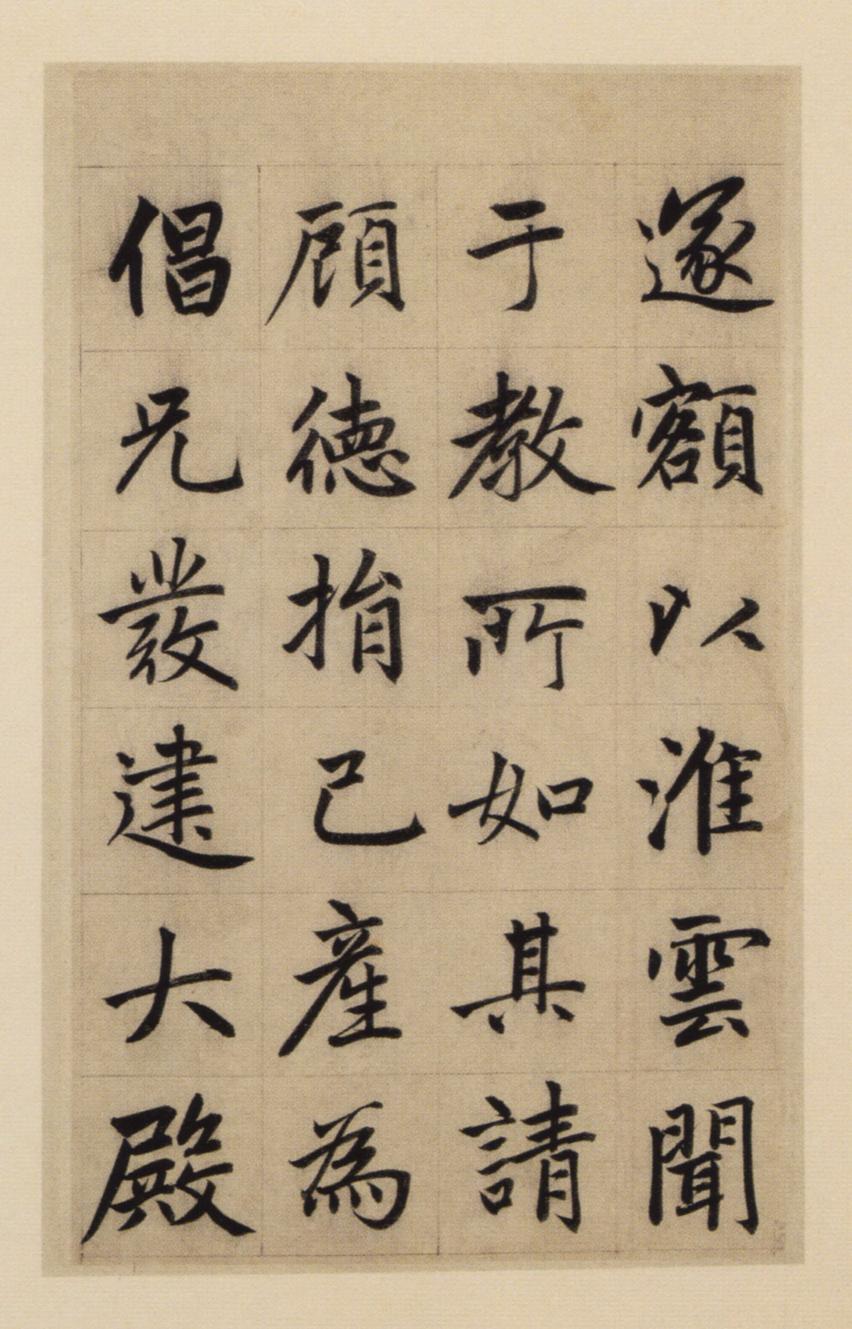 遂額以淮雲聞
于教所如其請
顧德指己產為
倡凡發建大殿